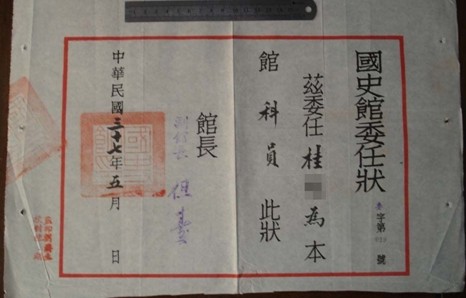 國史館委任狀
字第 號
茲委任桂 為本
館科員此狀
館長
但燾
中華民國三十七年五月 日